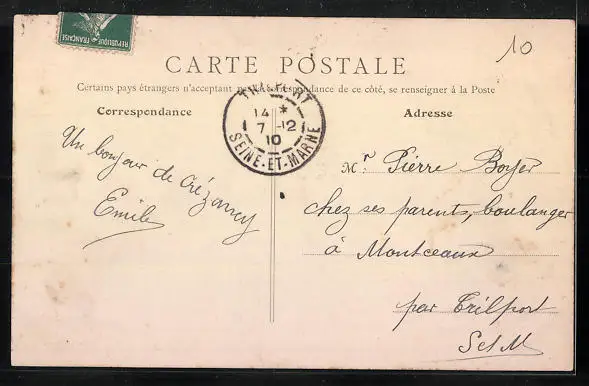 RÉPUBLIQUE FRANÇAISE
10
CARTE POSTALE
Certains pays étrangers n'acceptant pas la correspondance de ce côté, se renseigner à la Poste
Correspondance
Adresse
TRILPORT
14 *
7 -12
10
SEINE-ET-MARNE
Un bonjour de Crézancy
Emile
Mr Pierre Boyer
chez ses parents, boulanger
à Montceaux
par Trilport
S et M